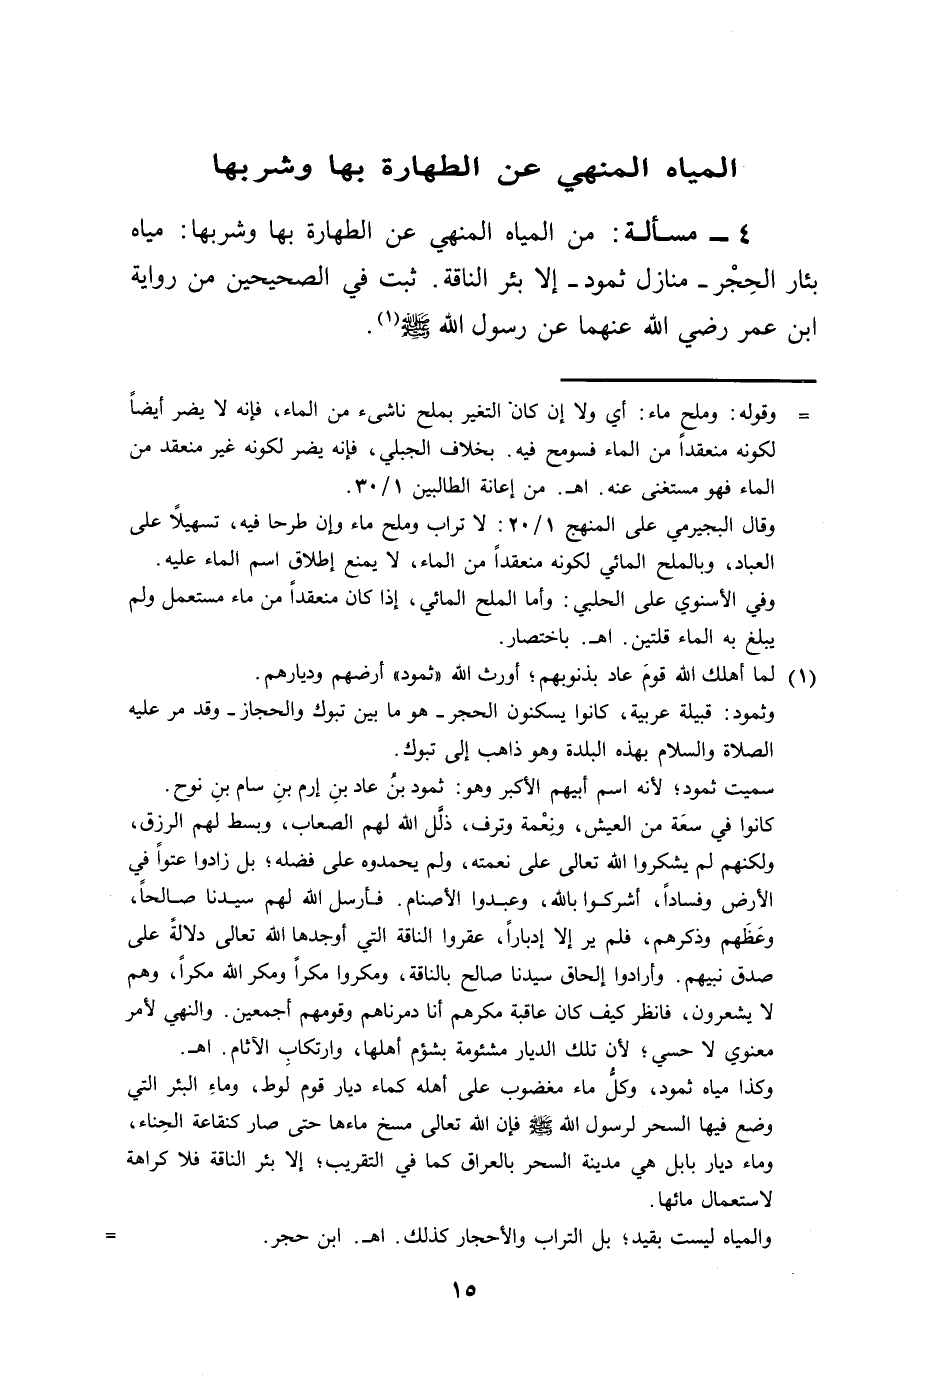 المياه المنهي عن الطهارة بها وشربها
٤ ـ مسألة: من المياه المنهي عن الطهارة بها وشربها: مياه
بئار الحِجْر ـ منازل ثمود ـ إلا بئر الناقة. ثبت في الصحيحين من رواية
ابن عمر رضي الله عنهما عن رسول الله ﷺ(١).
= وقوله: وملح ماء: أي ولا إن كان التغير بملح ناشىء من الماء، فإنه لا يضر أيضاً
لكونه منعقداً من الماء فسومح فيه. بخلاف الجبلي، فإنه يضر لكونه غير منعقد من
الماء فهو مستغنى عنه. اهـ. من إعانة الطالبين ٣٠/١.
وقال البجيرمي على المنهج ٢٠/١: لا تراب وملح ماء وإن طرحا فيه، تسهيلاً على
العباد، وبالملح المائي لكونه منعقداً من الماء، لا يمنع إطلاق اسم الماء عليه.
وفي الأسنوي على الحلبي: وأما الملح المائي، إذا كان منعقداً من ماء مستعمل ولم
يبلغ به الماء قلتين. اهـ. باختصار.
(١) لما أهلك الله قومَ عاد بذنوبهم؛ أورث الله «ثمود» أرضهم وديارهم.
وثمود: قبيلة عربية، كانوا يسكنون الحجر ـ هو ما بين تبوك والحجاز ـ وقد مر عليه
الصلاة والسلام بهذه البلدة وهو ذاهب إلى تبوك.
سميت ثمود؛ لأنه اسم أبيهم الأكبر وهو: ثمود بنُ عاد بنِ إرم بنِ سام بنِ نوح.
كانوا في سعَة من العيش، ونِعْمة وترف، ذلَّل الله لهم الصعاب، وبسط لهم الرزق،
ولكنهم لم يشكروا الله تعالى على نعمته، ولم يحمدوه على فضله؛ بل زادوا عتواً في
الأرض وفساداً، أشركوا بالله، وعبدوا الأصنام. فأرسل الله لهم سيدنا صالحاً،
وعَظَهم وذكرهم، فلم ير إلا إدباراً، عقروا الناقة التي أوجدها الله تعالى دلالةً على
صدق نبيهم. وأرادوا إلحاق سيدنا صالح بالناقة، ومكروا مكراً ومكر الله مكراً، وهم
لا يشعرون، فانظر كيف كان عاقبة مكرهم أنا دمرناهم وقومهم أجمعين. والنهي لأمر
معنوي لا حسي؛ لأن تلك الديار مشئومة بشؤم أهلها، وارتكابِ الآثام. اهـ.
وكذا مياه ثمود، وكلُّ ماء مغضوب على أهله كماء ديار قوم لوط، وماءِ البئر التي
وضع فيها السحر لرسول الله ﷺ فإن الله تعالى مسخ ماءها حتى صار كنقاعة الحِناء،
وماء ديار بابل هي مدينة السحر بالعراق كما في التقريب؛ إلا بئر الناقة فلا كراهة
لاستعمال مائها.
والمياه ليست بقيد؛ بل التراب والأحجار كذلك. اهـ. ابن حجر. =
١٥